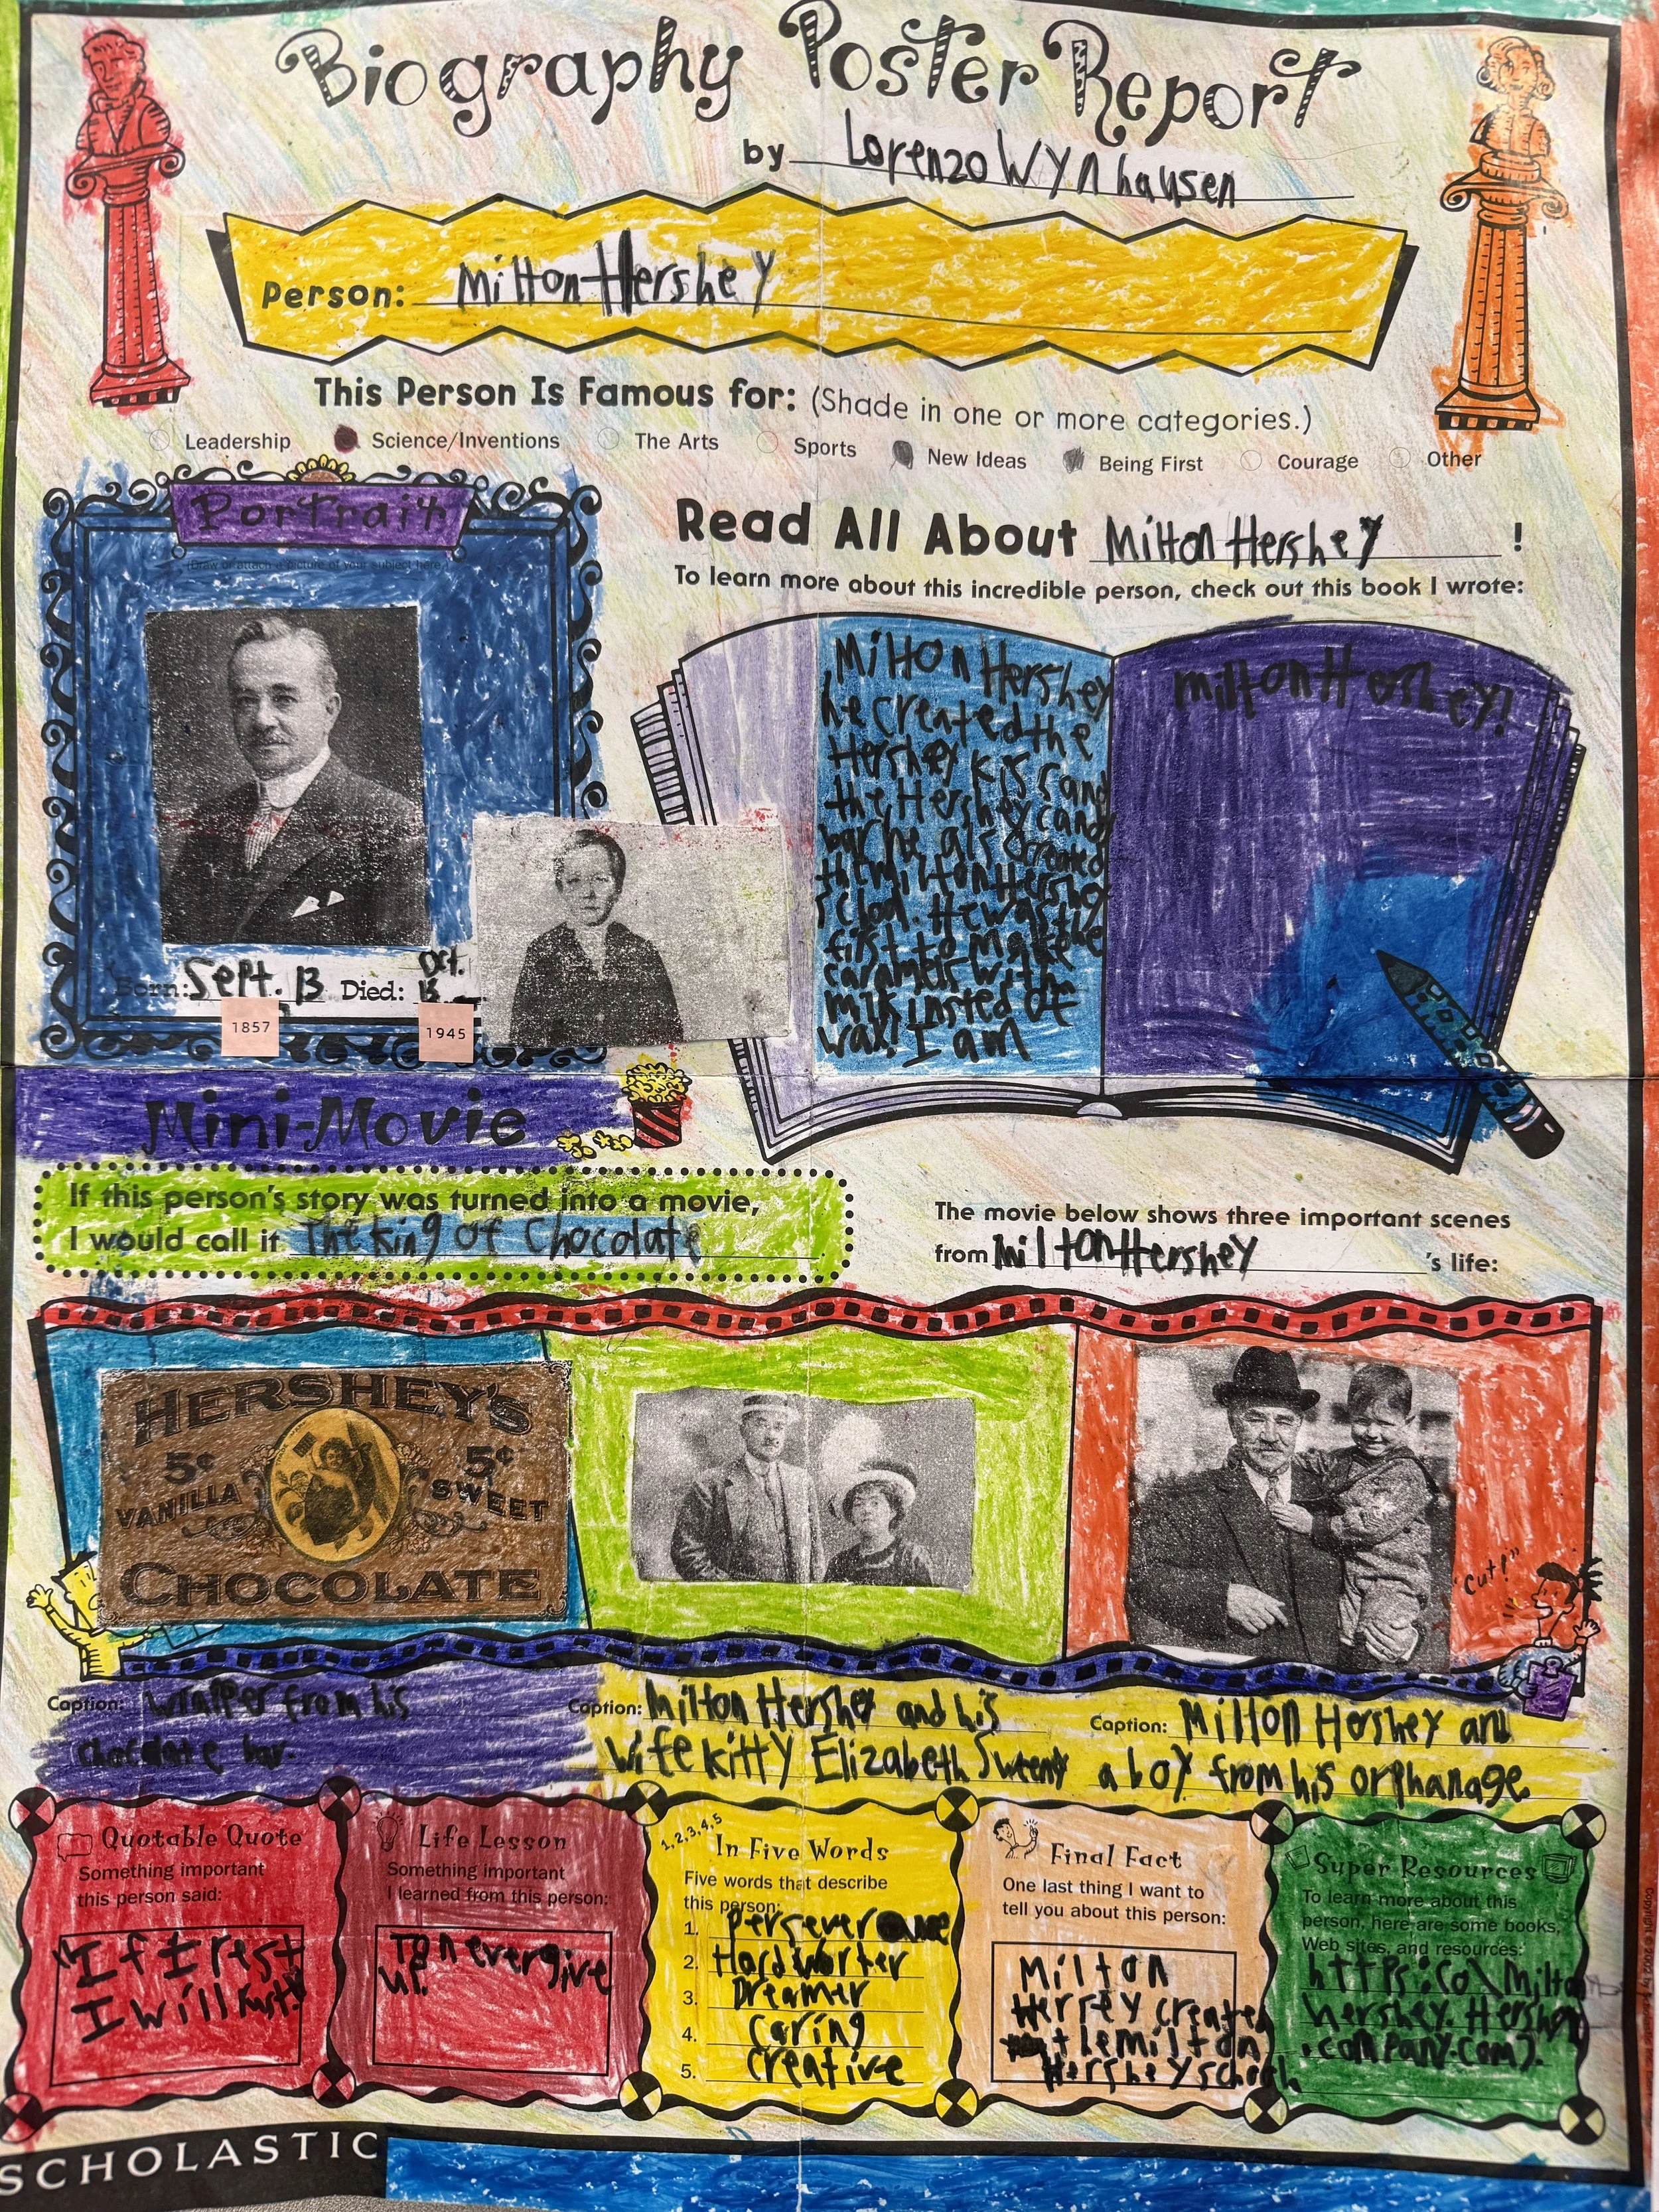 Biography Poster Report
by Lorenzo Wynhausen
Person: Milton Hershey
This Person Is Famous for: (Shade in one or more categories.)
Leadership Science/Inventions The Arts Sports New Ideas Being First Courage Other
Portrait
(Draw or attach a picture of your subject here.)
Born: Sept. 13 Died: Oct. 13
1857 1945
Read All About Milton Hershey !
To learn more about this incredible person, check out this book I wrote:
Milton Hershey
he created the
Hershey kiss and
the Hershey candy
bar he als created
the Milton Hershey
sclool. He was the
first to make
caramels with
milk insted of
wax! I am
milton Hershey!
Mini-Movie
If this person's story was turned into a movie,
I would call it The King of Chocolate
The movie below shows three important scenes
from Milton Hershey 's life:
HERSHEY'S
5¢ 5¢
VANILLA SWEET
CHOCOLATE
"Cut!"
Caption: Wrapper from his
chocolate bar.
Caption: Milton Hershey and his
wife kitty Elizabeth Sweeny
Caption: Milton Hershey and
a boy from his orphanage
Quotable Quote
Something important
this person said:
"If I rest
I will rust!"
Life Lesson
Something important
I learned from this person:
To never give
up.
1,2,3,4,5
In Five Words
Five words that describe
this person:
1.
2. Hard worker
3. Dreamer
4. caring
5. creative
Final Fact
One last thing I want to
tell you about this person:
Milton
Hersey created
the milton
Hershey school
Super Resources
To learn more about this
person, here are some books,
Web sites, and resources:
hershey. Hershey
.company.com).
SCHOLASTIC